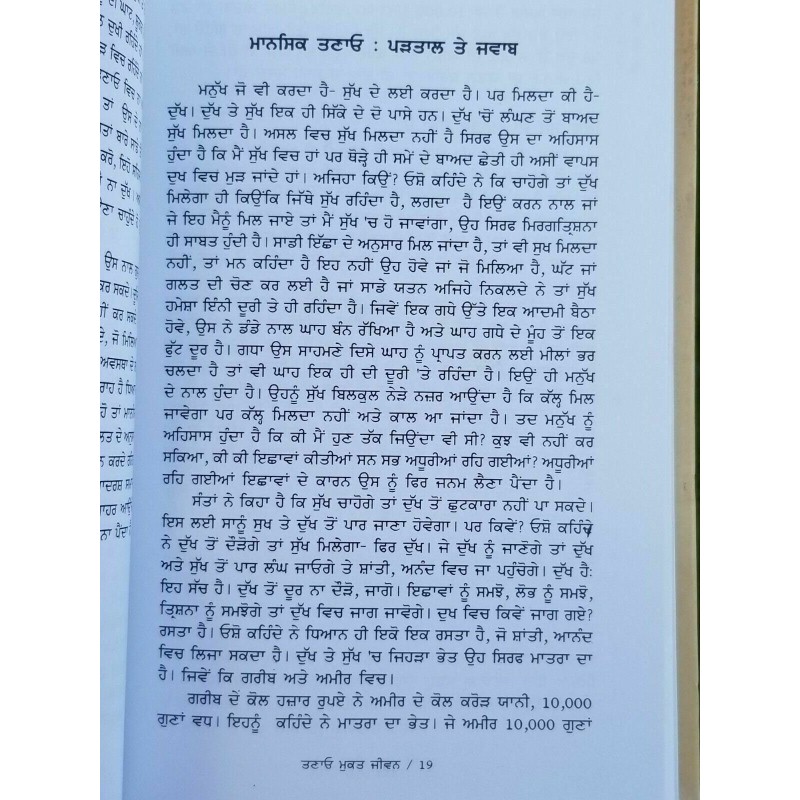 ਮਾਨਸਿਕ ਤਣਾਓ : ਪੜਤਾਲ ਤੇ ਜਵਾਬ
ਮਨੁੱਖ ਜੋ ਵੀ ਕਰਦਾ ਹੈ- ਸੁੱਖ ਦੇ ਲਈ ਕਰਦਾ ਹੈ। ਪਰ ਮਿਲਦਾ ਕੀ ਹੈ-
ਦੁੱਖ। ਦੁੱਖ ਤੇ ਸੁੱਖ ਇਕ ਹੀ ਸਿੱਕੇ ਦੇ ਦੋ ਪਾਸੇ ਹਨ। ਦੁੱਖ 'ਚੋਂ ਲੰਘਣ ਤੋਂ ਬਾਅਦ
ਸੁੱਖ ਮਿਲਦਾ ਹੈ। ਅਸਲ ਵਿਚ ਸੁੱਖ ਮਿਲਦਾ ਨਹੀਂ ਹੈ ਸਿਰਫ ਉਸ ਦਾ ਅਹਿਸਾਸ
ਹੁੰਦਾ ਹੈ ਕਿ ਮੈਂ ਸੁੱਖ ਵਿਚ ਹਾਂ ਪਰ ਥੋੜ੍ਹੇ ਹੀ ਸਮੇਂ ਦੇ ਬਾਅਦ ਛੇਤੀ ਹੀ ਅਸੀਂ ਵਾਪਸ
ਦੁਖ ਵਿਚ ਮੁੜ ਜਾਂਦੇ ਹਾਂ। ਅਜਿਹਾ ਕਿਉਂ? ਓਸ਼ੋ ਕਹਿੰਦੇ ਨੇ ਕਿ ਚਾਹੋਗੇ ਤਾਂ ਦੁੱਖ
ਮਿਲੇਗਾ ਹੀ ਕਿਉਂਕਿ ਜਿੱਥੇ ਸੁੱਖ ਰਹਿੰਦਾ ਹੈ, ਲਗਦਾ ਹੈ ਇਉਂ ਕਰਨ ਨਾਲ ਜਾਂ
ਜੇ ਇਹ ਮੈਨੂੰ ਮਿਲ ਜਾਏ ਤਾਂ ਮੈਂ ਸੁੱਖ 'ਚ ਹੋ ਜਾਵਾਂਗਾ, ਉਹ ਸਿਰਫ ਮਿਰਗਤ੍ਰਿਸ਼ਨਾ
ਹੀ ਸਾਬਤ ਹੁੰਦੀ ਹੈ। ਸਾਡੀ ਇੱਛਾ ਦੇ ਅਨੁਸਾਰ ਮਿਲ ਜਾਂਦਾ ਹੈ, ਤਾਂ ਵੀ ਸੁਖ ਮਿਲਦਾ
ਨਹੀਂ, ਤਾਂ ਮਨ ਕਹਿੰਦਾ ਹੈ ਇਹ ਨਹੀਂ ਉਹ ਹੋਵੇ ਜਾਂ ਜੋ ਮਿਲਿਆ ਹੈ, ਘੱਟ ਜਾਂ
ਗਲਤ ਦੀ ਚੋਣ ਕਰ ਲਈ ਹੈ ਜਾਂ ਸਾਡੇ ਯਤਨ ਅਜਿਹੇ ਨਿਕਲਦੇ ਨੇ ਤਾਂ ਸੁੱਖ
ਹਮੇਸ਼ਾ ਇੰਨੀ ਦੂਰੀ ਤੇ ਹੀ ਰਹਿੰਦਾ ਹੈ। ਜਿਵੇਂ ਇਕ ਗਧੇ ਉੱਤੇ ਇਕ ਆਦਮੀ ਬੈਠਾ
ਹੋਵੇ, ਉਸ ਨੇ ਡੰਡੇ ਨਾਲ ਘਾਹ ਬੰਨ ਰੱਖਿਆ ਹੈ ਅਤੇ ਘਾਹ ਗਧੇ ਦੇ ਮੂੰਹ ਤੋਂ ਇਕ
ਫੁੱਟ ਦੂਰ ਹੈ। ਗਧਾ ਉਸ ਸਾਹਮਣੇ ਦਿਸੇ ਘਾਹ ਨੂੰ ਪ੍ਰਾਪਤ ਕਰਨ ਲਈ ਮੀਲਾਂ ਭਰ
ਚਲਦਾ ਹੈ ਤਾਂ ਵੀ ਘਾਹ ਇਕ ਹੀ ਦੀ ਦੂਰੀ 'ਤੇ ਰਹਿੰਦਾ ਹੈ। ਇਉਂ ਹੀ ਮਨੁੱਖ
ਦੇ ਨਾਲ ਹੁੰਦਾ ਹੈ। ਉਹਨੂੰ ਸੁੱਖ ਬਿਲਕੁਲ ਨੇੜੇ ਨਜ਼ਰ ਆਉਂਦਾ ਹੈ ਕਿ ਕੱਲ੍ਹ ਮਿਲ
ਜਾਵੇਗਾ ਪਰ ਕੱਲ੍ਹ ਮਿਲਦਾ ਨਹੀਂ ਅਤੇ ਕਾਲ ਆ ਜਾਂਦਾ ਹੈ। ਤਦ ਮਨੁੱਖ ਨੂੰ
ਅਹਿਸਾਸ ਹੁੰਦਾ ਹੈ ਕਿ ਕੀ ਮੈਂ ਹੁਣ ਤੱਕ ਜਿਉਂਦਾ ਵੀ ਸੀ? ਕੁਝ ਵੀ ਨਹੀਂ ਕਰ
ਸਕਿਆ, ਕੀ ਕੀ ਇਛਾਵਾਂ ਕੀਤੀਆਂ ਸਨ ਸਭ ਅਧੂਰੀਆਂ ਰਹਿ ਗਈਆਂ? ਅਧੂਰੀਆਂ
ਰਹਿ ਗਈਆਂ ਇਛਾਵਾਂ ਦੇ ਕਾਰਨ ਉਸ ਨੂੰ ਫਿਰ ਜਨਮ ਲੈਣਾ ਪੈਂਦਾ ਹੈ।
ਸੰਤਾਂ ਨੇ ਕਿਹਾ ਹੈ ਕਿ ਸੁੱਖ ਚਾਹੋਗੇ ਤਾਂ ਦੁੱਖ ਤੋਂ ਛੁਟਕਾਰਾ ਨਹੀਂ ਪਾ ਸਕਦੇ।
ਇਸ ਲਈ ਸਾਨੂੰ ਸੁਖ ਤੇ ਦੁੱਖ ਤੋਂ ਪਾਰ ਜਾਣਾ ਹੋਵੇਗਾ। ਪਰ ਕਿਵੇਂ? ਓਸ਼ੋ ਕਹਿੰਦੇ
ਨੇ ਦੁੱਖ ਤੋਂ ਦੌੜੋਗੇ ਤਾਂ ਸੁੱਖ ਮਿਲੇਗਾ- ਫਿਰ ਦੁੱਖ। ਜੇ ਦੁੱਖ ਨੂੰ ਜਾਣੋਗੇ ਤਾਂ ਦੁੱਖ
ਅਤੇ ਸੁੱਖ ਤੋਂ ਪਾਰ ਲੰਘ ਜਾਓਗੇ ਤੇ ਸ਼ਾਂਤੀ, ਅਨੰਦ ਵਿਚ ਜਾ ਪਹੁੰਚੋਗੇ। ਦੁੱਖ ਹੈ:
ਇਹ ਸੱਚ ਹੈ। ਦੁੱਖ ਤੋਂ ਦੂਰ ਨਾ ਦੌੜੋ, ਜਾਗੋ। ਇਛਾਵਾਂ ਨੂੰ ਸਮਝੋ, ਲੋਭ ਨੂੰ ਸਮਝੋ,
ਤ੍ਰਿਸ਼ਨਾ ਨੂੰ ਸਮਝੋਗੇ ਤਾਂ ਦੁੱਖ ਵਿਚ ਜਾਗ ਜਾਵੋਗੇ। ਦੁਖ ਵਿਚ ਕਿਵੇਂ ਜਾਗ ਗਏ?
ਰਸਤਾ ਹੈ। ਓਸ਼ੋ ਕਹਿੰਦੇ ਨੇ ਧਿਆਨ ਹੀ ਇਕੋ ਇਕ ਰਸਤਾ ਹੈ, ਜੋ ਸ਼ਾਂਤੀ, ਆਨੰਦ
ਵਿਚ ਲਿਜਾ ਸਕਦਾ ਹੈ। ਦੁੱਖ ਤੇ ਸੁੱਖ 'ਚ ਜਿਹੜਾ ਭੇਤ ਉਹ ਸਿਰਫ ਮਾਤਰਾ ਦਾ
ਹੈ। ਜਿਵੇਂ ਕਿ ਗਰੀਬ ਅਤੇ ਅਮੀਰ ਵਿਚ।
ਗਰੀਬ ਦੇਂ ਕੋਲ ਹਜ਼ਾਰ ਰੁਪਏ ਨੇ ਅਮੀਰ ਦੇ ਕੋਲ ਕਰੋੜ ਯਾਨੀ, 10,000
ਗੁਣਾਂ ਵਧ। ਇਹਨੂੰ ਕਹਿੰਦੇ ਨੇ ਮਾਤਰਾ ਦਾ ਭੇਤ। ਜੇ ਅਮੀਰ 10,000 ਗੁਣਾਂ
ਤਣਾਓ ਮੁਕਤ ਜੀਵਨ / 19